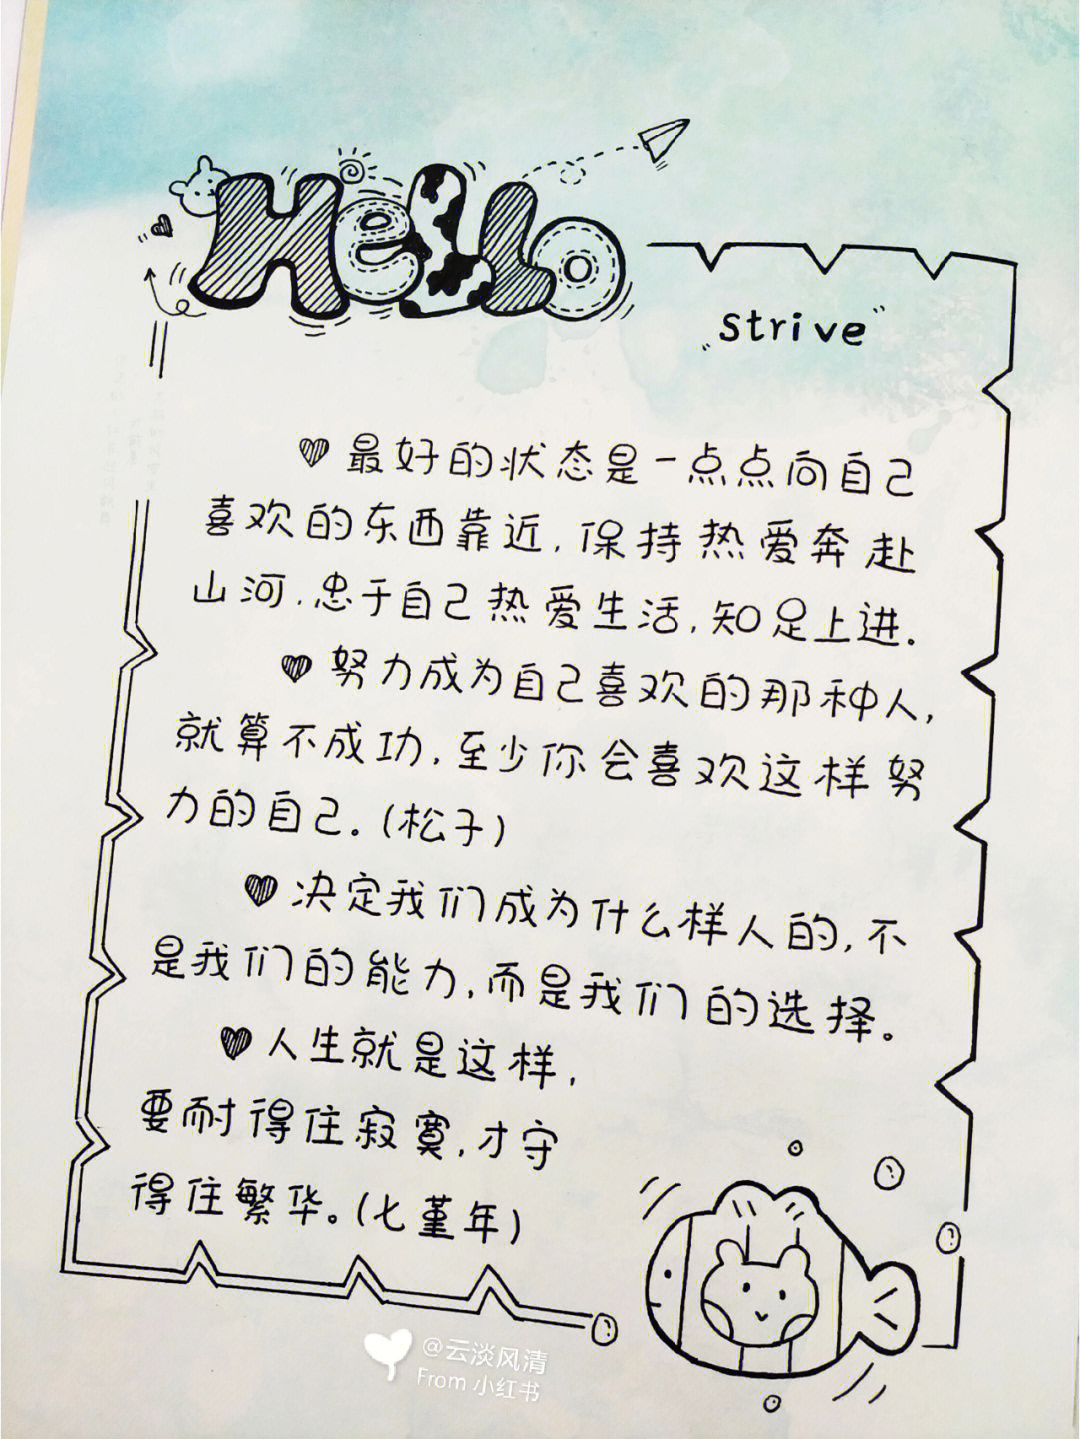 Hello
"strive"
♥最好的状态是一点点向自己
喜欢的东西靠近,保持热爱奔赴
山河,忠于自己热爱生活,知足上进.
♥努力成为自己喜欢的那种人,
就算不成功,至少你会喜欢这样努
力的自己。(松子)
♥决定我们成为什么样人的,不
是我们的能力,而是我们的选择。
♥人生就是这样,
要耐得住寂寞,才守
得住繁华。(七堇年)
@云淡风清
From 小红书